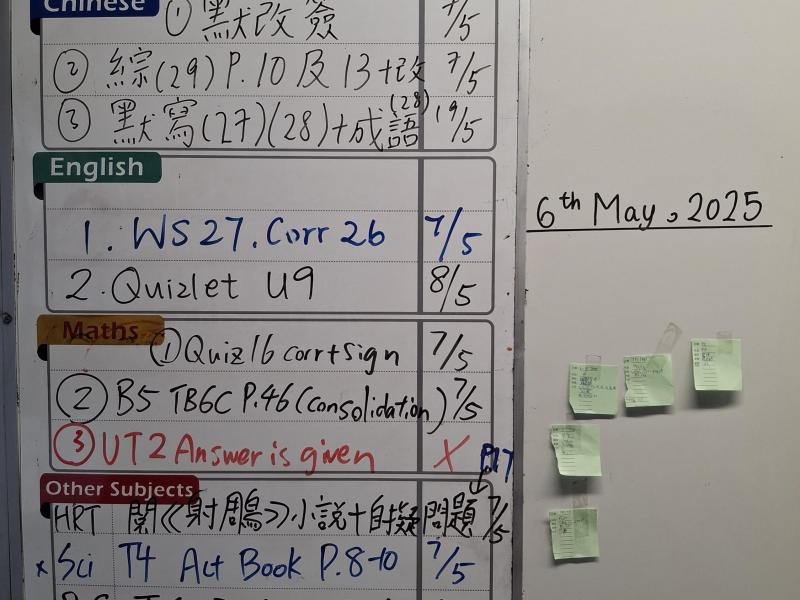 Chinese
① 默改簽 7/5
② 綜(29) P.10 及 13+改 7/5
③ 默寫(27)(28)+成語(28) 19/5
English
1. WS 27. Corr 26 7/5
2. Quizlet U9 8/5
Maths
① Quiz 16 corr+sign 7/5
② B5 TB6C P.46 (consolidation) 7/5
③ UT2 Answer is given X
P.17
Other Subjects
HRT 閱《射鵰》小說+自擬問題 7/5
x Sci T4 Act Book P.8-10 7/5
6th May, 2025